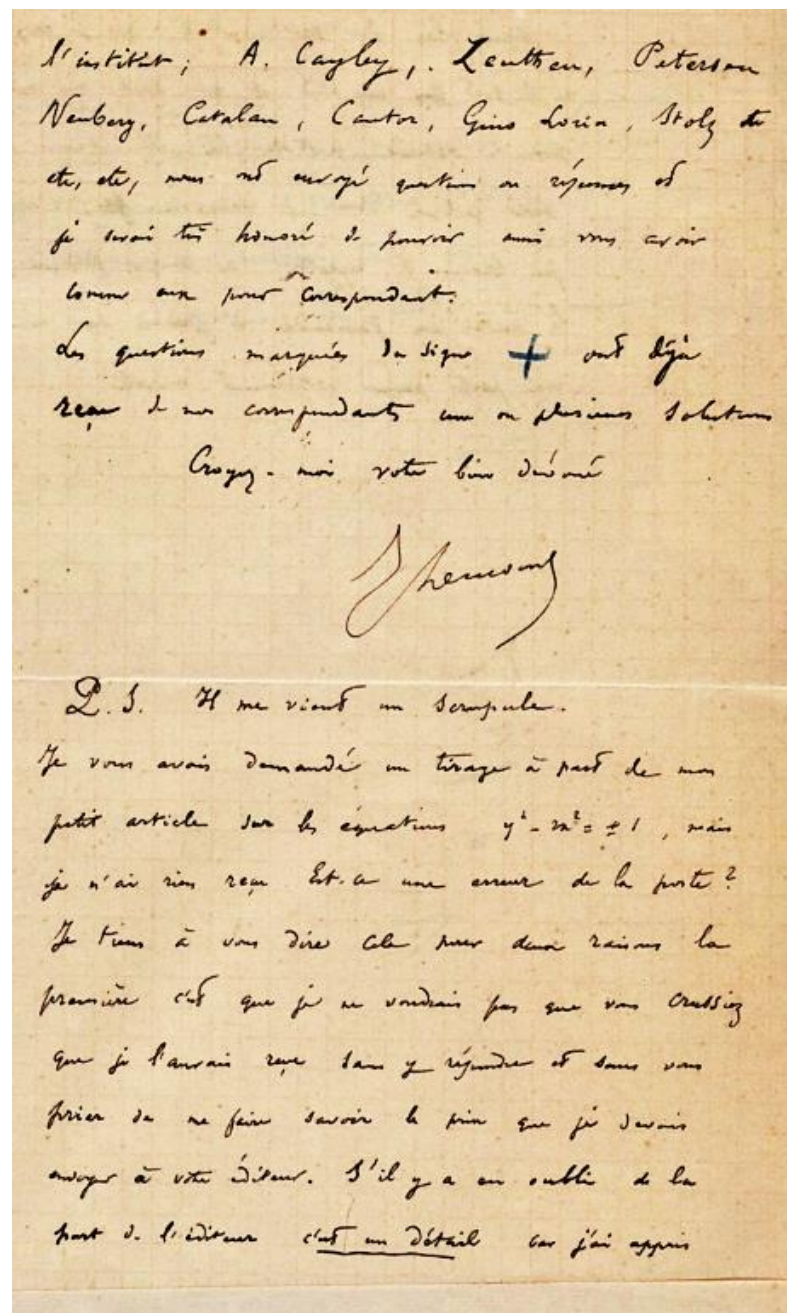 l'institut; A. Cayley, Zeuthen, Petersen
Neuberg, Catalan, Cantor, Gino Loria, Stolz etc
etc, etc, nous ont envoyé questions ou réponses et
je serais très honoré de pouvoir aussi vous avoir
comme eux pour correspondant.
Les questions marquées du signe + ont déjà
reçu de nos correspondants une ou plusieurs solutions
Croyez-moi votre bien dévoué
P.S. Il me vient un scrupule.
Je vous avais demandé un tirage à part de mon
petit article sur les équations y² - 2x² = ± 1, mais
je n'ai rien reçu Est-ce une erreur de la poste?
Je tiens à vous dire cela pour deux raisons la
première c'est que je ne voudrais pas que vous crussiez
que je l'aurais reçu sans y répondre et sans vous
prier de me faire savoir le prix que je devais
envoyer à votre éditeur. S'il y a eu oubli de la
part de l'éditeur c'est un détail car j'ai appris